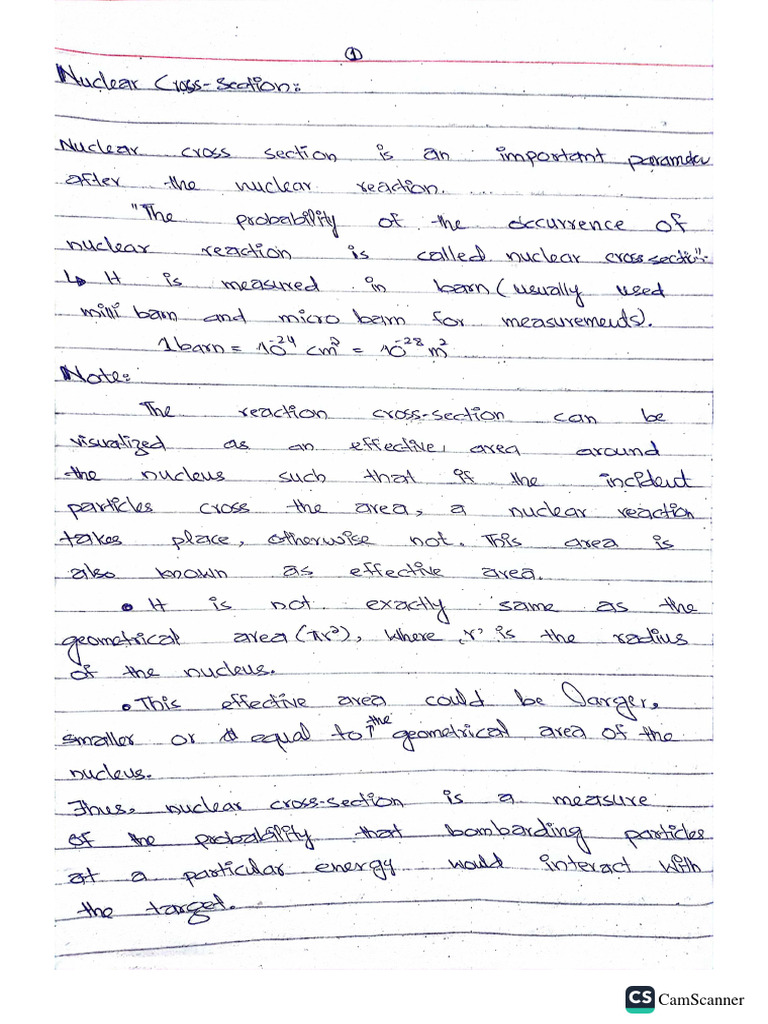 ①
Nuclear Cross-section:
Nuclear cross section is an important parameter
after the nuclear reaction.
"The probability of the occurrence of
nuclear reaction is called nuclear cross section".
↳ It is measured in barn (usually used
milli barn and micro barn for measurements).
1 barn = 10⁻²⁴ cm² = 10⁻²⁸ m²
Note:
The reaction cross-section can be
visualized as an effective, area around
the nucleus such that if the incident
particles cross the area, a nuclear reaction
takes place, otherwise not. This area is
also known as effective area.
• It is not exactly same as the
geometrical area (πr²), where 'r' is the radius
of the nucleus.
• This effective area could be larger,
smaller or equal to the geometrical area of the
nucleus.
Thus, nuclear cross-section is a measure
of the probability that bombarding particles
at a particular energy would interact with
the target.
CS CamScanner